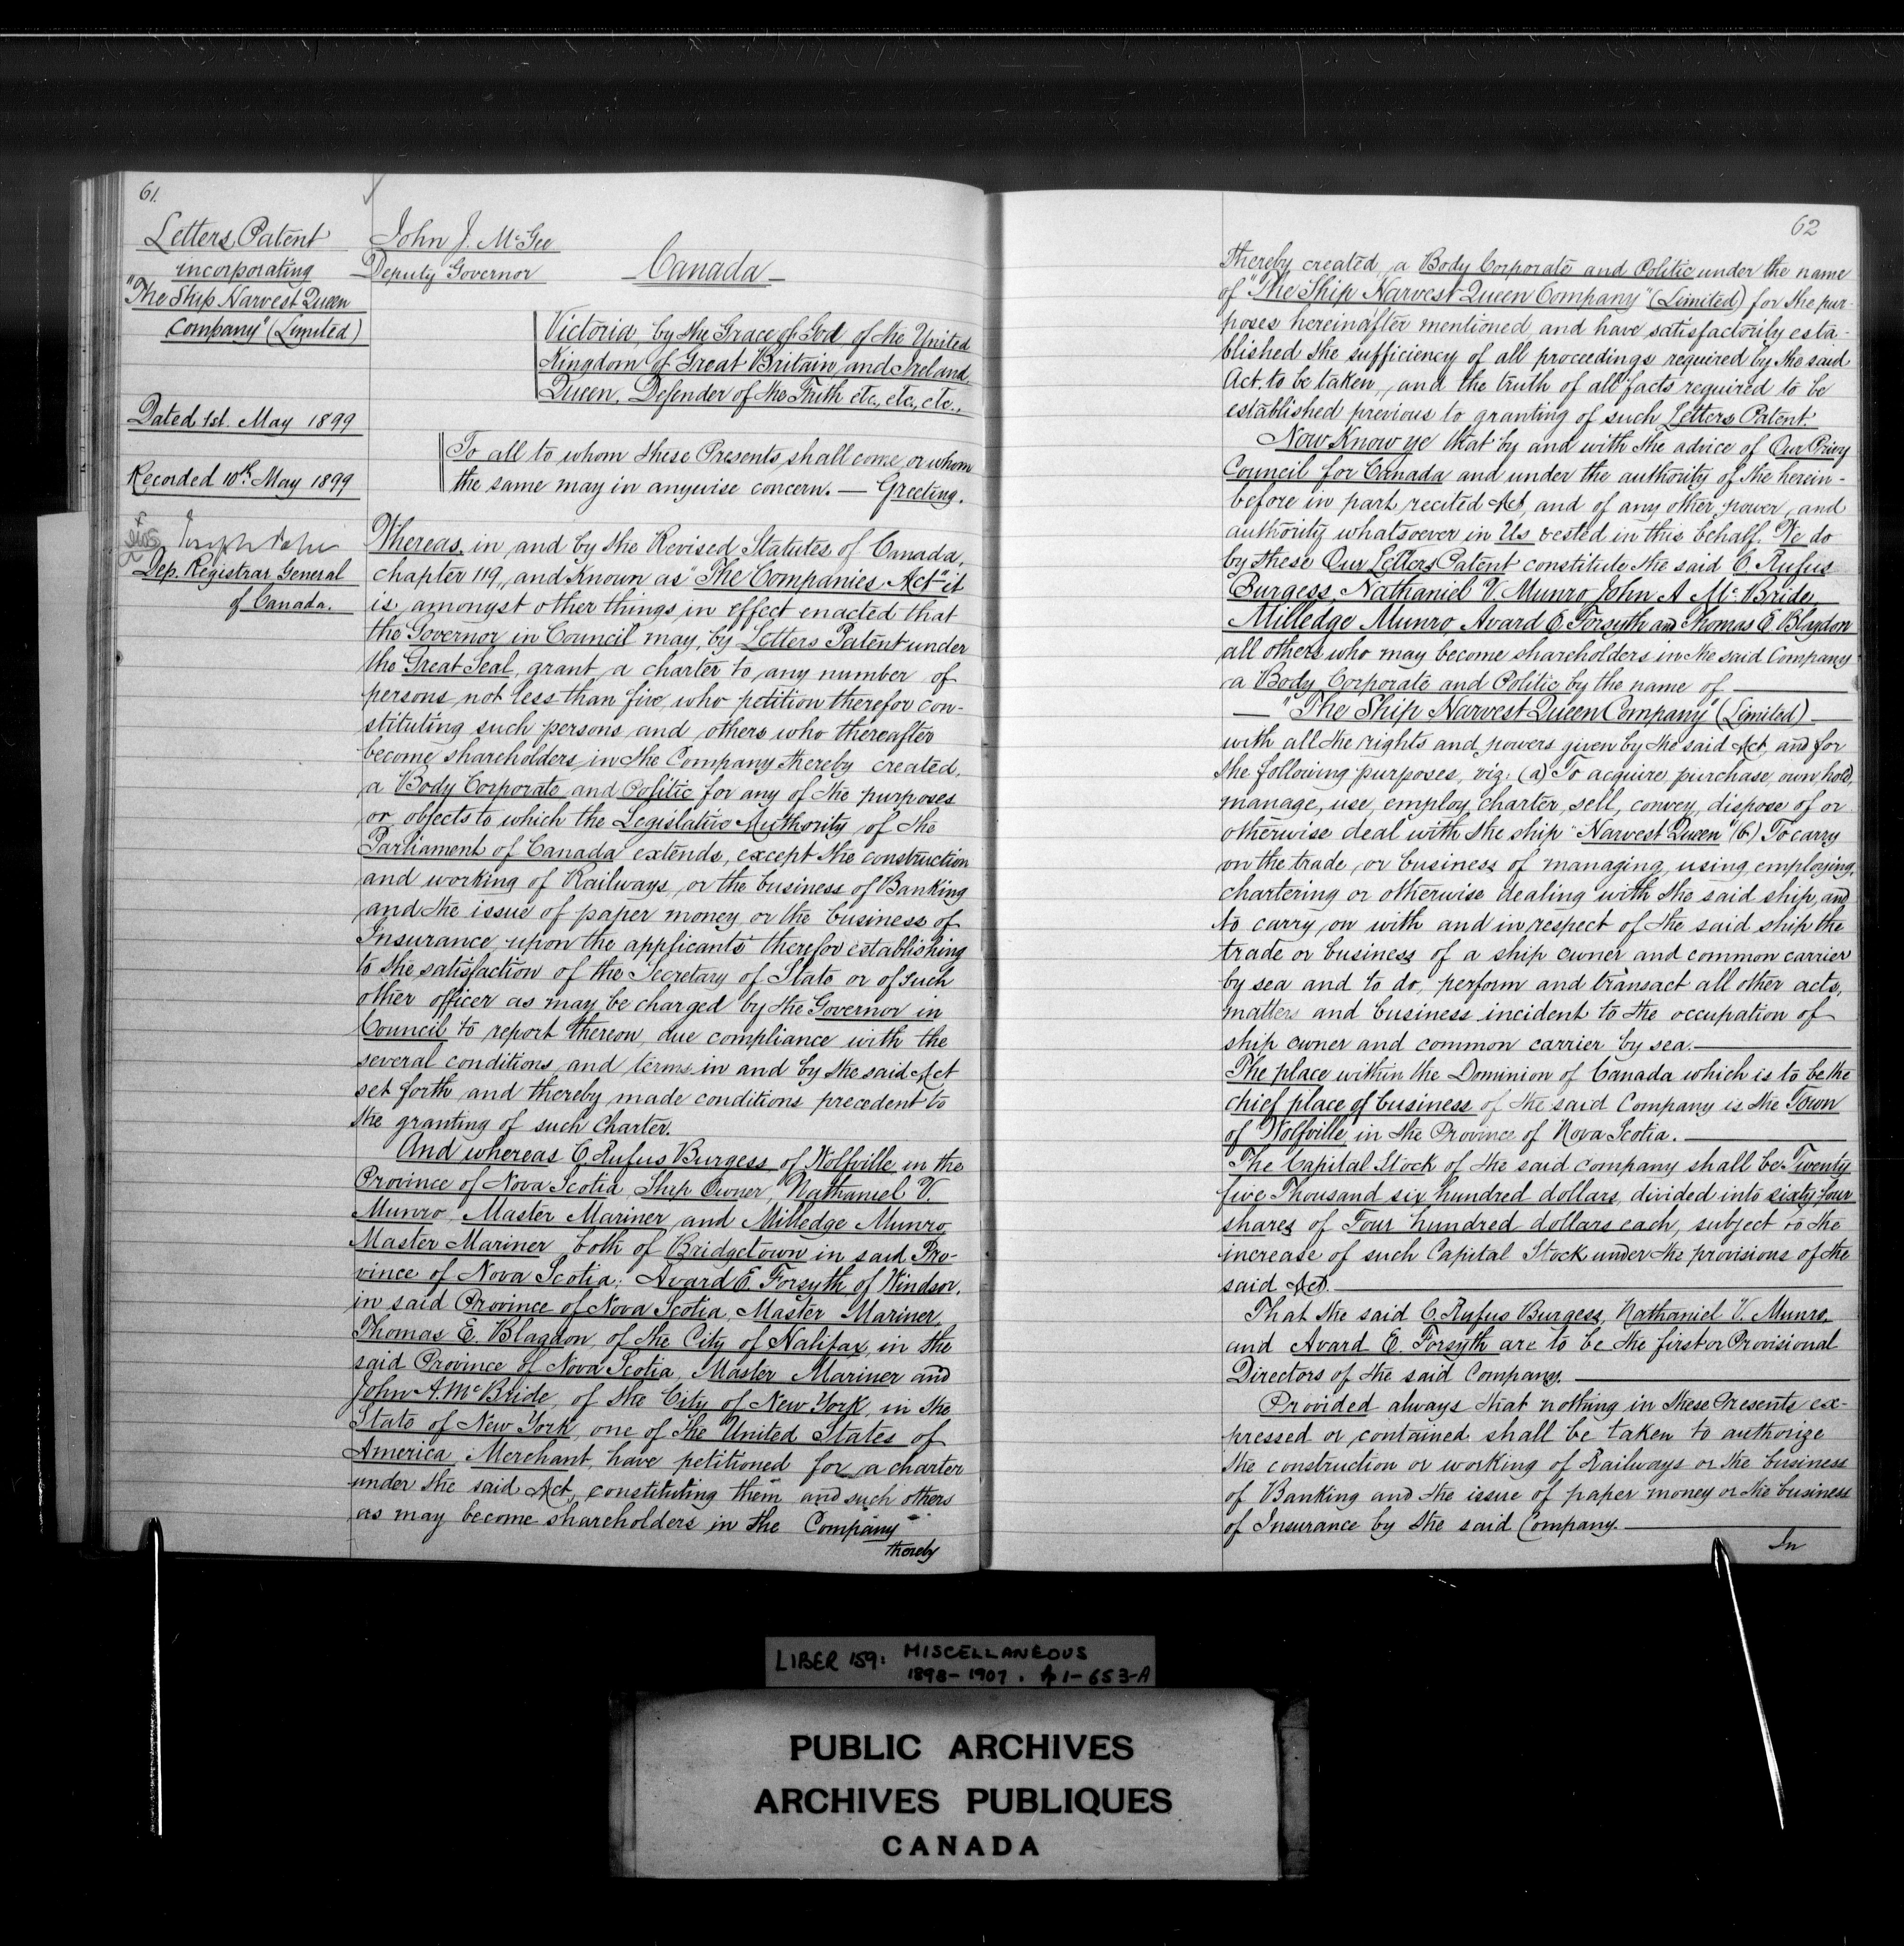 61.
Letters Patent
incorporating
"The Ship Harvest Queen
Company" (Limited)
Dated 1st. May 1899
Recorded 10th. May 1899
Joseph Pope
Dep. Registrar General
of Canada.
John J. McGee
Deputy Governor
Canada
Victoria, by the Grace of God, of the United
Kingdom of Great Britain and Ireland,
Queen, Defender of the Faith etc., etc., etc.,
To all to whom these Presents shall come or whom
the same may in anywise concern. — Greeting.
Whereas, in and by the Revised Statutes of Canada,
chapter 119, and Known as "The Companies Act" it
is, amongst other things in effect enacted that
the Governor in Council may, by Letters Patent under
the Great Seal, grant a charter to any number of
persons not less than five who petition therefor con-
stituting such persons and others who thereafter
become shareholders in the Company thereby created,
a Body Corporate and Politic for any of the purposes
or objects to which the Legislative Authority of the
Parliament of Canada extends, except the construction
and working of Railways, or the business of Banking
and the issue of paper money or the business of
Insurance, upon the applicants therefor establishing
to the satisfaction of the Secretary of State or of such
other officer as may be charged by the Governor in
Council to report thereon, due compliance with the
several conditions and terms in and by the said Act
set forth and thereby made conditions precedent to
the granting of such Charter.
And whereas C. Rufus Burgess of Wolfville in the
Province of Nova Scotia, Ship Owner, Nathaniel V.
Munro, Master Mariner and Milledge Munro,
Master Mariner both of Bridgetown in said Pro-
vince of Nova Scotia; Avard E. Forsyth of Windsor,
in said Province of Nova Scotia, Master Mariner,
Thomas E. Blagdon, of the City of Halifax, in the
said Province of Nova Scotia, Master Mariner and
John A. McBride, of the City of New York, in the
State of New York, one of the United States of
America, Merchant, have petitioned for a charter
under the said Act, constituting them and such others
as may become shareholders in the Company
thereby
62
thereby created, a Body Corporate and Politic under the name
of "The Ship Harvest Queen Company" (Limited) for the pur-
poses hereinafter mentioned, and have satisfactorily esta-
blished the sufficiency of all proceedings required by the said
Act, to be taken, and the truth of all facts required to be
established previous to granting of such Letters Patent.
Now Know ye that by and with the advice of Our Privy
Council for Canada and under the authority of the herein-
before in part recited Act, and of any other power and
authority whatsoever in Us vested in this behalf, We do
by these Our Letters Patent constitute the said C. Rufus
Burgess, Nathaniel V. Munro, John A. McBride,
Milledge Munro Avard E. Forsyth and Thomas E. Blagdon
all others who may become shareholders in the said Company
a Body Corporate and Politic by the name of
"The Ship Harvest Queen Company" (Limited)
with all the rights and powers given by the said Act, and for
the following purposes, viz: (a) To acquire, purchase, own, hold,
manage, use, employ, charter, sell, convey, dispose of or
otherwise deal with the ship "Harvest Queen" (b) To carry
on the trade, or business of managing, using, employing,
chartering or otherwise dealing with the said ship, and
to carry on with and in respect of the said ship the
trade or business of a ship owner and common carrier
by sea and to do, perform and transact all other acts,
matters and business incident to the occupation of
ship owner and common carrier by sea.
The place within the Dominion of Canada which is to be the
chief place of business of the said Company is the Town
of Wolfville in the Province of Nova Scotia.
The Capital Stock of the said company shall be Twenty
five Thousand six hundred dollars, divided into sixty four
shares of Four hundred dollars each, subject to the
increase of such Capital Stock under the provisions of the
said Act.
That the said C. Rufus Burgess, Nathaniel V. Munro,
and Avard E. Forsyth are to be the first or Provisional
Directors of the said Company.
Provided always that nothing in these Presents ex-
pressed or contained shall be taken to authorize
the construction or working of Railways or the business
of Banking and the issue of paper money or the business
of Insurance by the said Company.
In
LIBER 159: MISCELLANEOUS
1898-1907. p 1-653-A
PUBLIC ARCHIVES
ARCHIVES PUBLIQUES
CANADA